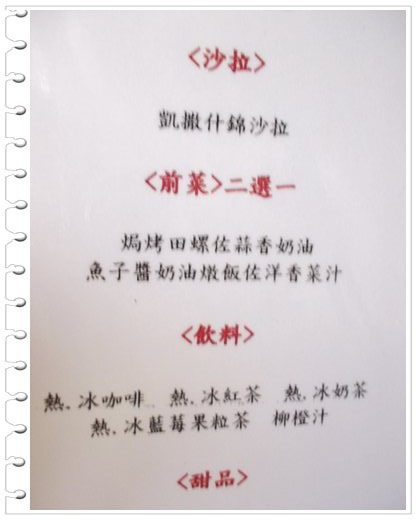 <沙拉>
凱撒什錦沙拉
<前菜>二選一
焗烤田螺佐蒜香奶油
魚子醬奶油燉飯佐洋香菜汁
<飲料>
熱.冰咖啡 熱.冰紅茶 熱.冰奶茶
熱.冰藍莓果粒茶 柳橙汁
<甜品>